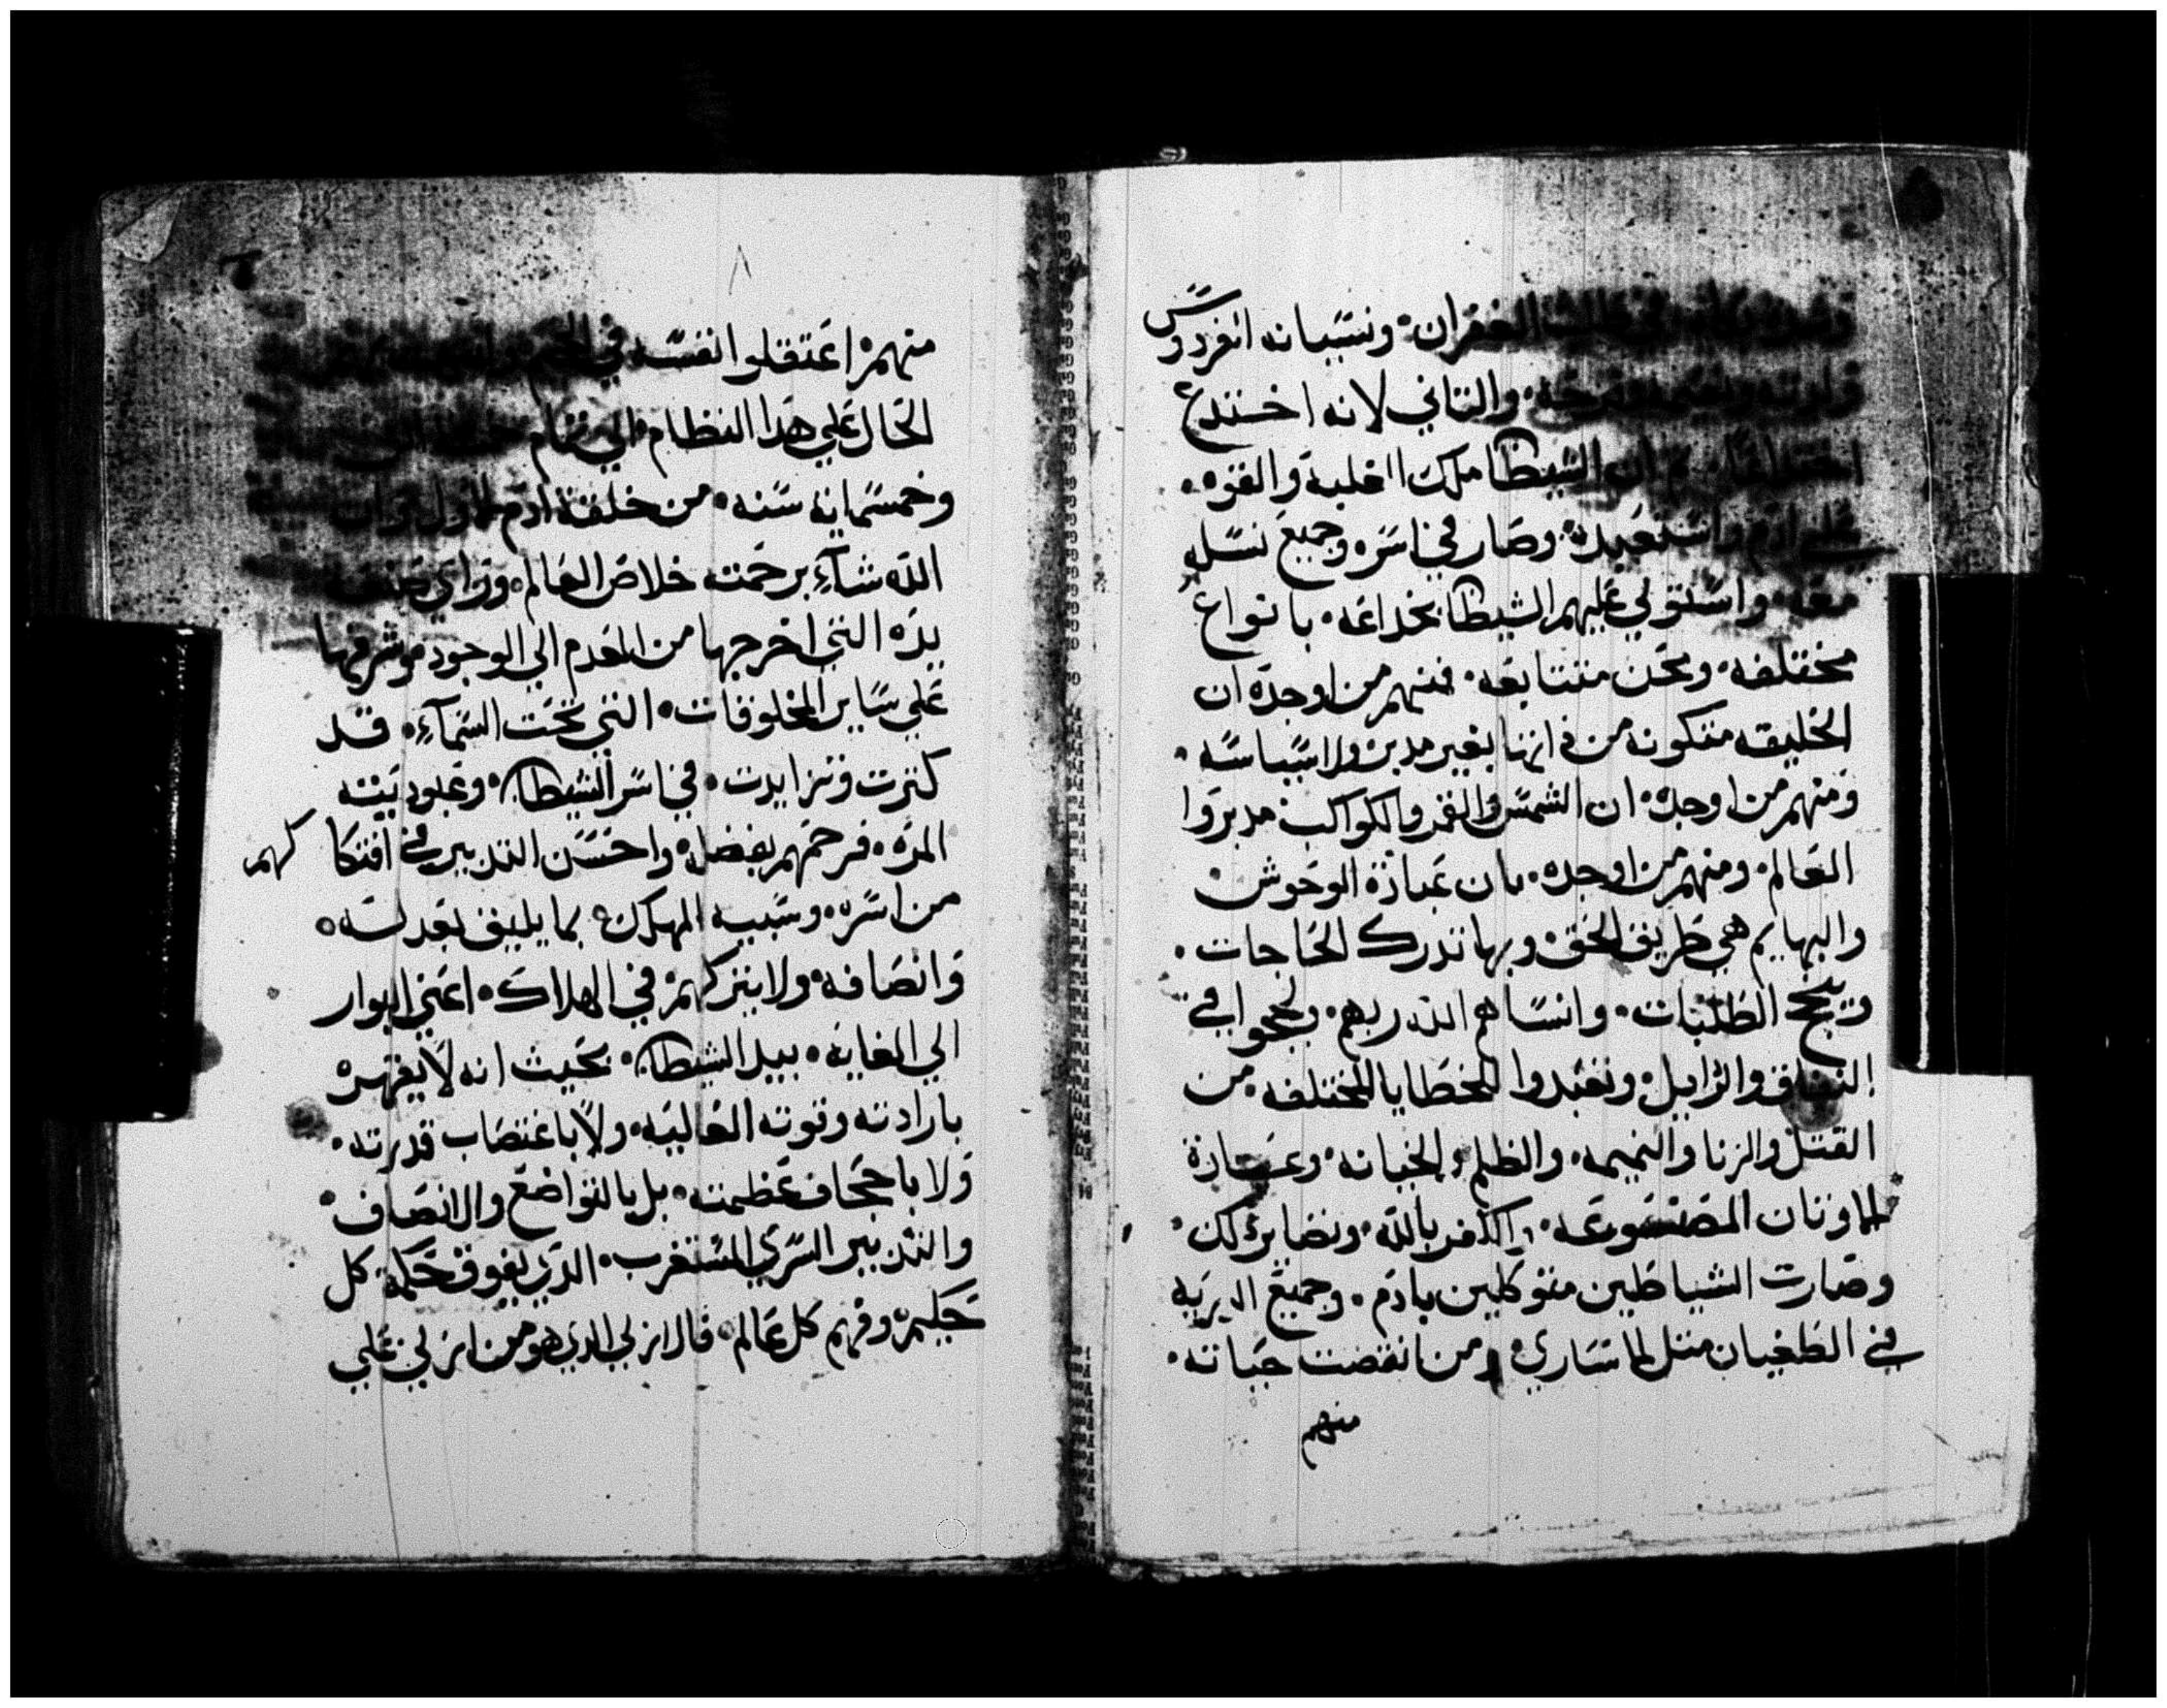 في طلب الغفران۰ ونسيانه الفردوس
والتاني لانه اختدع
ان الشيطا ملك الغلبه والقوه۰
علي ادم واستعبده۰ وصار في اسره وجميع نسله
معه۰ واستولي عليهم الشيطا بخداعه۰ بانواع
مختلفه۰ ومحن متتابعه۰ فمنهم من اوجده ان
الخليقه متكونه من داتها بغير مدبر ولا سياسه۰
ومنهم من اوجده۰ ان الشمس والقمر والكواكب مدبروا
العالم۰ ومنهم من اوجده۰ بان عبادة الوحوش
والبهايم هي طريق الحق۰ وبها تدرك الحاجات۰
وتنجح الطلبات۰ وانساهم الله ربهم۰ ولججوا في
النفاق والزايل۰ وتعبدوا للخطايا المختلفه۰ من
القتل والزنا والنميمه۰ والظلم والخيانه۰ وعبادة
الاوتان المصنوعه۰ والكفر بالله۰ ونضاير دلك۰
وصارت الشياطين متوكلين بادم۰ وجميع الدريه
في الطغيان متل الاساري۰ ومن انقضت حياته۰
منهم
منهم۰ اعتقلوا نفسه في الجحيم
الحال علي هدا النظام۰ الي تمام خمسة الاف
وخمسمايه سنه۰ من خلقة ادم الاول وان
الله شاء برحمته خلاص العالم۰ وراي صنعة
يده التي اخرجها من العدم الي الوجود۰ وشرفها
علي ساير المخلوقات۰ التي تحت السماء۰ قد
كترت وتزايدت۰ في اسر الشيطا۰ وعبوديته
المره۰ فرحمهم بفضله واحسن التدبير في افتكا كهم
من اسره۰ وسبيه المهلك۰ بما يليق بعدله۰
وانصافه۰ ولا يتركهم۰ في الهلاك۰ اعني البوار
الي الغايه۰ بيد الشيطا۰ بحيث انه لا يقهره
بارادته وقوته العاليه۰ ولا باغتصاب قدرته۰
ولا باجحاف عظمته۰ بل بالتواضع والانصاف۰
والتدبير السري المستغرب۰ الدي يفوق حكمة كل
حكيم۰ وفهم كل عالم۰ قال ازلي الدي هو من ازلي علي